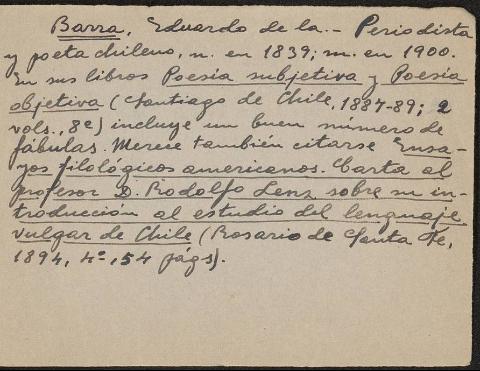 Barra, Eduardo de la.- Periodista
y poeta chileno, n. en 1839; m. en 1900.
En sus libros Poesía subjetiva y Poesía
objetiva (Santiago de Chile, 1887-89; 2
vols., 8º) incluye un buen número de
fábulas. Merece también citarse Ensa-
yos filológicos americanos. Carta al
profesor D. Rodolfo Lenz sobre su in-
troducción al estudio del lenguaje
vulgar de Chile (Rosario de Santa Fe,
1894, 4º, 54 págs).